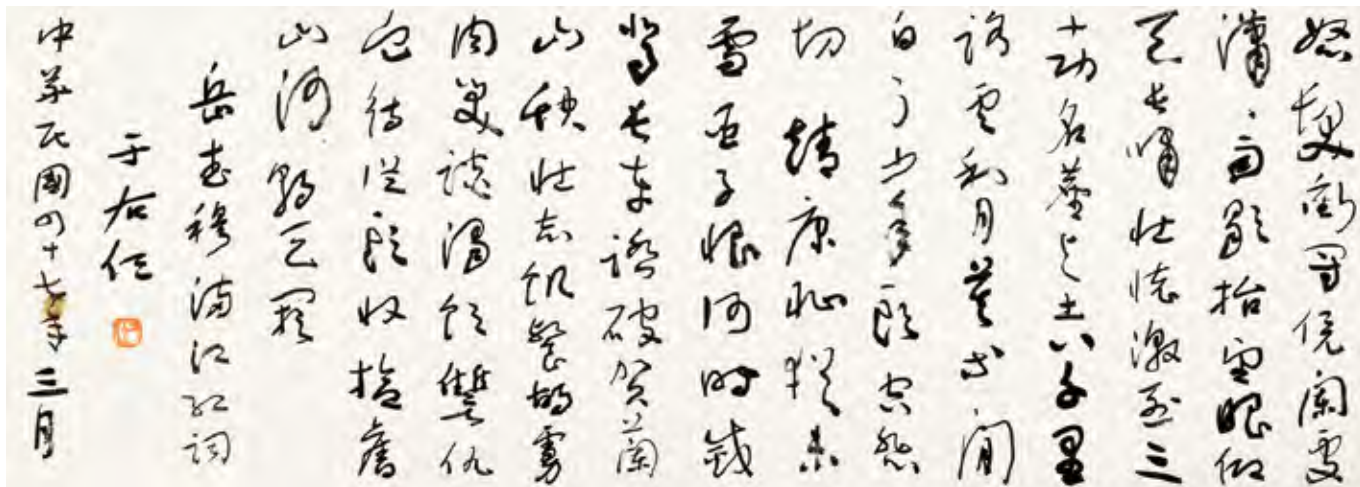 怒髮衝冠凭闌處
瀟、雨歇抬望眼仰
天長嘯壯懷激烈三
十功名塵与土八千里
路雲和月莫等閒
白了少年頭空悲
切 靖康恥猶未
雪臣子恨何時滅
駕長車踏破賀蘭
山缺壯志飢餐胡虜
肉笑談渴飲讐仇
血待從頭收拾舊
山河朝天闕
岳武穆滿江紅詞
于右任
中華民國四十七年三月